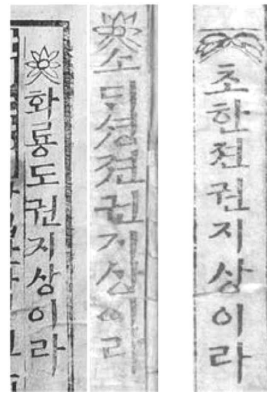 화룡도권지상이라
소ᄃᆡ셩젼권지상이라
초한젼권지상이라